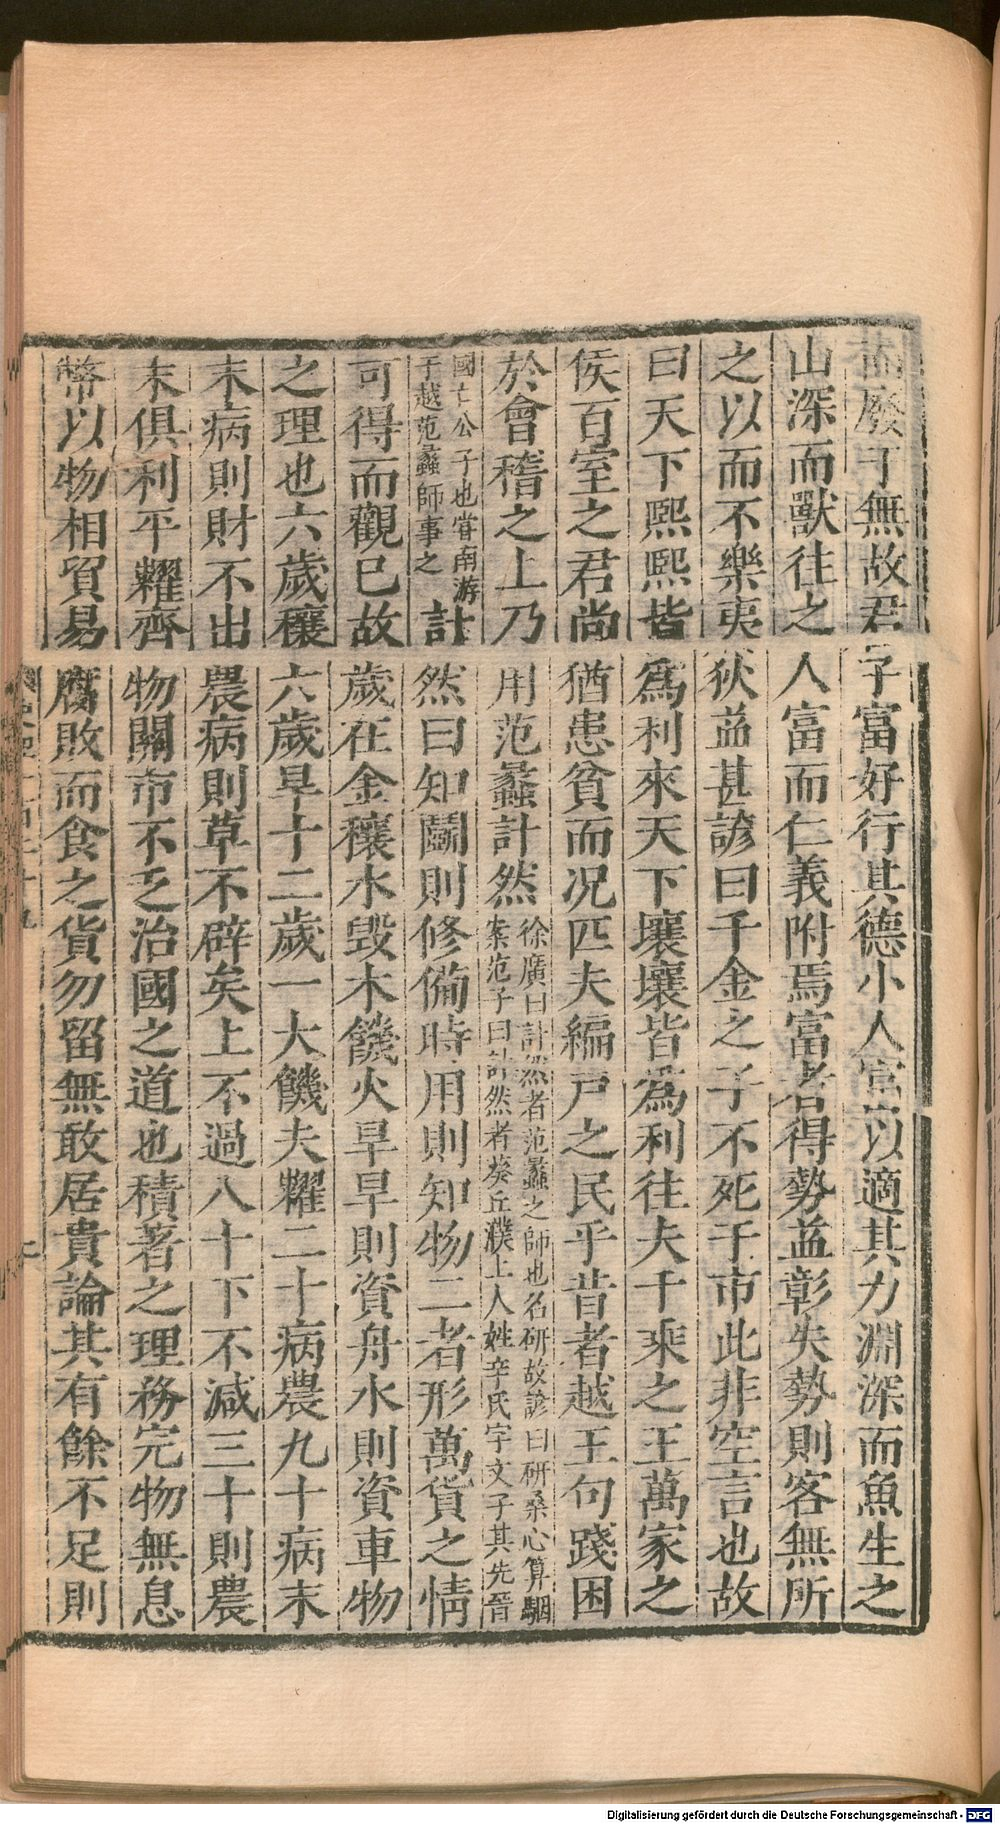 而廢于無故君子富好行其德小人富以適其力淵深而魚生之
山深而獸往之人富而仁義附焉富者得勢益彰失勢則客無所
之以而不樂夷狄益甚諺曰千金之子不死于市此非空言也故
曰天下熙熙皆爲利來天下壤壤皆爲利往夫千乘之王萬家之
侯百室之君尚猶患貧而况匹夫編戸之民乎昔者越王句踐困
於會稽之上乃用范蠡計然徐廣曰計然者范蠡之師也名研故諺曰研桑心算駰
案范子曰計然者葵丘濮上人姓辛氏字文子其先晉
國亡公子也嘗南游
于越范蠡師事之計然曰知鬭則修備時用則知物二者形萬貨之情
可得而觀已故歲在金穰水毁木饑火旱旱則資舟水則資車物
之理也六歲穰六歲旱十二歲一大饑夫糶二十病農九十病末
末病則財不出農病則草不辟矣上不過八十下不減三十則農
末俱利平糶齊物關市不乏治國之道也積著之理務完物無息
幣以物相貿易腐敗而食之貨勿留無敢居貴論其有餘不足則
Digitalisierung gefördert durch die Deutsche Forschungsgemeinschaft - DFG